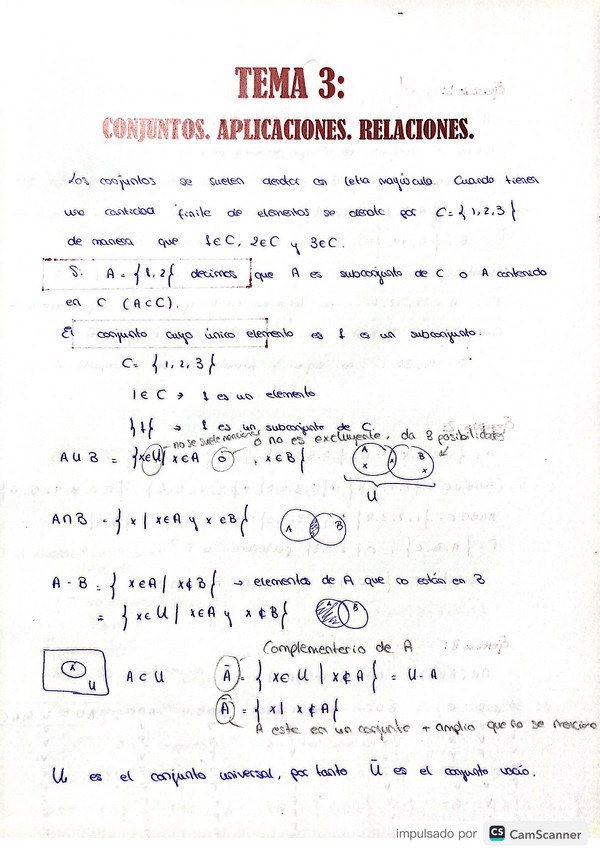 TEMA 3:
CONJUNTOS. APLICACIONES. RELACIONES.
Los conjuntos se suelen denotar con letra mayúscula. Cuando tienen
una cantidad finita de elementos se denota por C = {1,2,3}
de manera que 1∈C, 2∈C y 3∈C.
Si A = {1,2} decimos que A es subconjunto de C o A contenido
en C (A⊂C).
El conjunto cuyo único elemento es 1 es un subconjunto.
C = {1,2,3}
1∈C → 1 es un elemento
{1} → 1 es un subconjunto de C.
no se suele mencionar
o no es excluyente, da 3 posibilidades
A∪B = {x∈U | x∈A o x∈B}
A B
x x x
U
A∩B = {x | x∈A y x∈B}
A B
A - B = {x∈A | x∉B} → elementos de A que no están en B
= {x∈U | x∈A y x∉B}
A B
Complementario de A
A U
A⊂U
Ā = {x∈U | x∉A} = U-A
Ā = {x | x∉A}
A este en un conjunto + amplio que no se menciona
U es el conjunto universal, por tanto Ū es el conjunto vacío.
impulsado por CS CamScanner